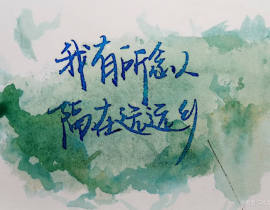 我有所念人
隔在远远乡